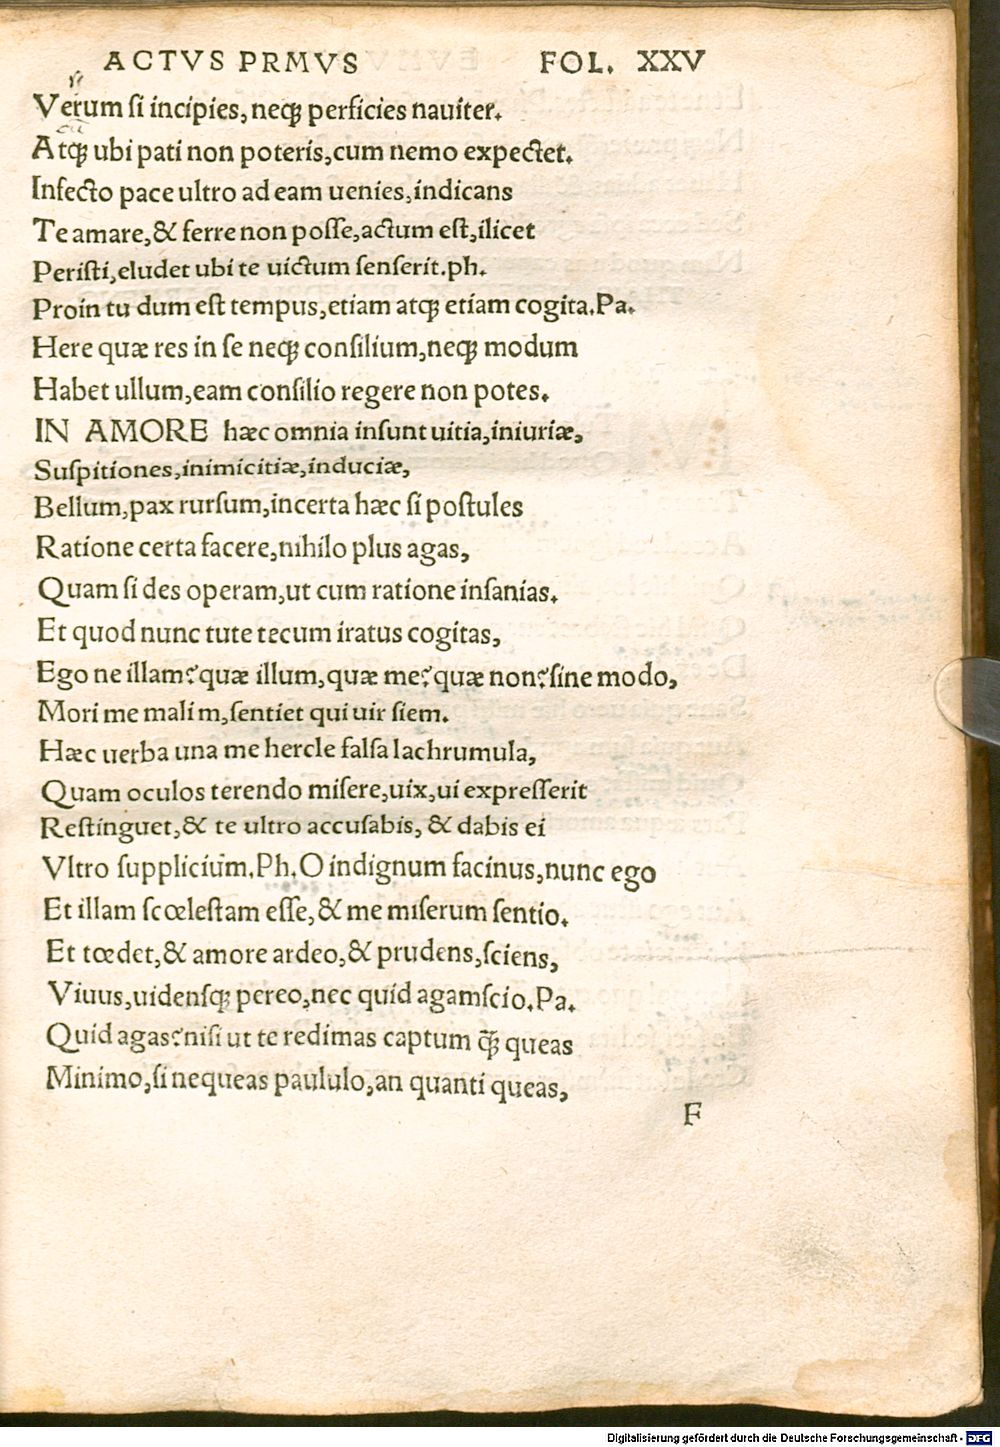 ACTVS PRMVS FOL. XXV
Verum ſi incipies, neq; perficies nauiter.
Atq; ubi pati non poteris, cum nemo expectet.
Infecto pace ultro ad eam uenies, indicans
Te amare, & ferre non poſſe, actum eſt, ilicet
Periſti, eludet ubi te uictum ſenſerit. ph.
Proin tu dum eſt tempus, etiam atq; etiam cogita. Pa.
Here quæ res in ſe neq; conſilium, neq; modum
Habet ullum, eam conſilio regere non potes.
IN AMORE hæc omnia inſunt uitia, iniuriæ,
Suſpitiones, inimicitiæ, induciæ,
Bellum, pax rurſum, incerta hæc ſi poſtules
Ratione certa facere, nihilo plus agas,
Quam ſi des operam, ut cum ratione inſanias.
Et quod nunc tute tecum iratus cogitas,
Ego ne illam? quæ illum, quæ me? quæ non? ſine modo,
Mori me malim, ſentiet qui uir ſiem.
Hæc uerba una me hercle falſa lachrumula,
Quam oculos terendo miſere, uix, ui expreſſerit
Reſtinguet, & te ultro accuſabis, & dabis ei
Vltro ſupplicium. Ph. O indignum facinus, nunc ego
Et illam ſcœleſtam eſſe, & me miſerum ſentio.
Et tœdet, & amore ardeo, & prudens, ſciens,
Viuus, uidenſq; pereo, nec quid agam ſcio. Pa.
Quid agas? niſi ut te redimas captum q̃; queas
Minimo, ſi nequeas paululo, an quanti queas,
F
Digitalisierung gefördert durch die Deutsche Forschungsgemeinschaft - DFG